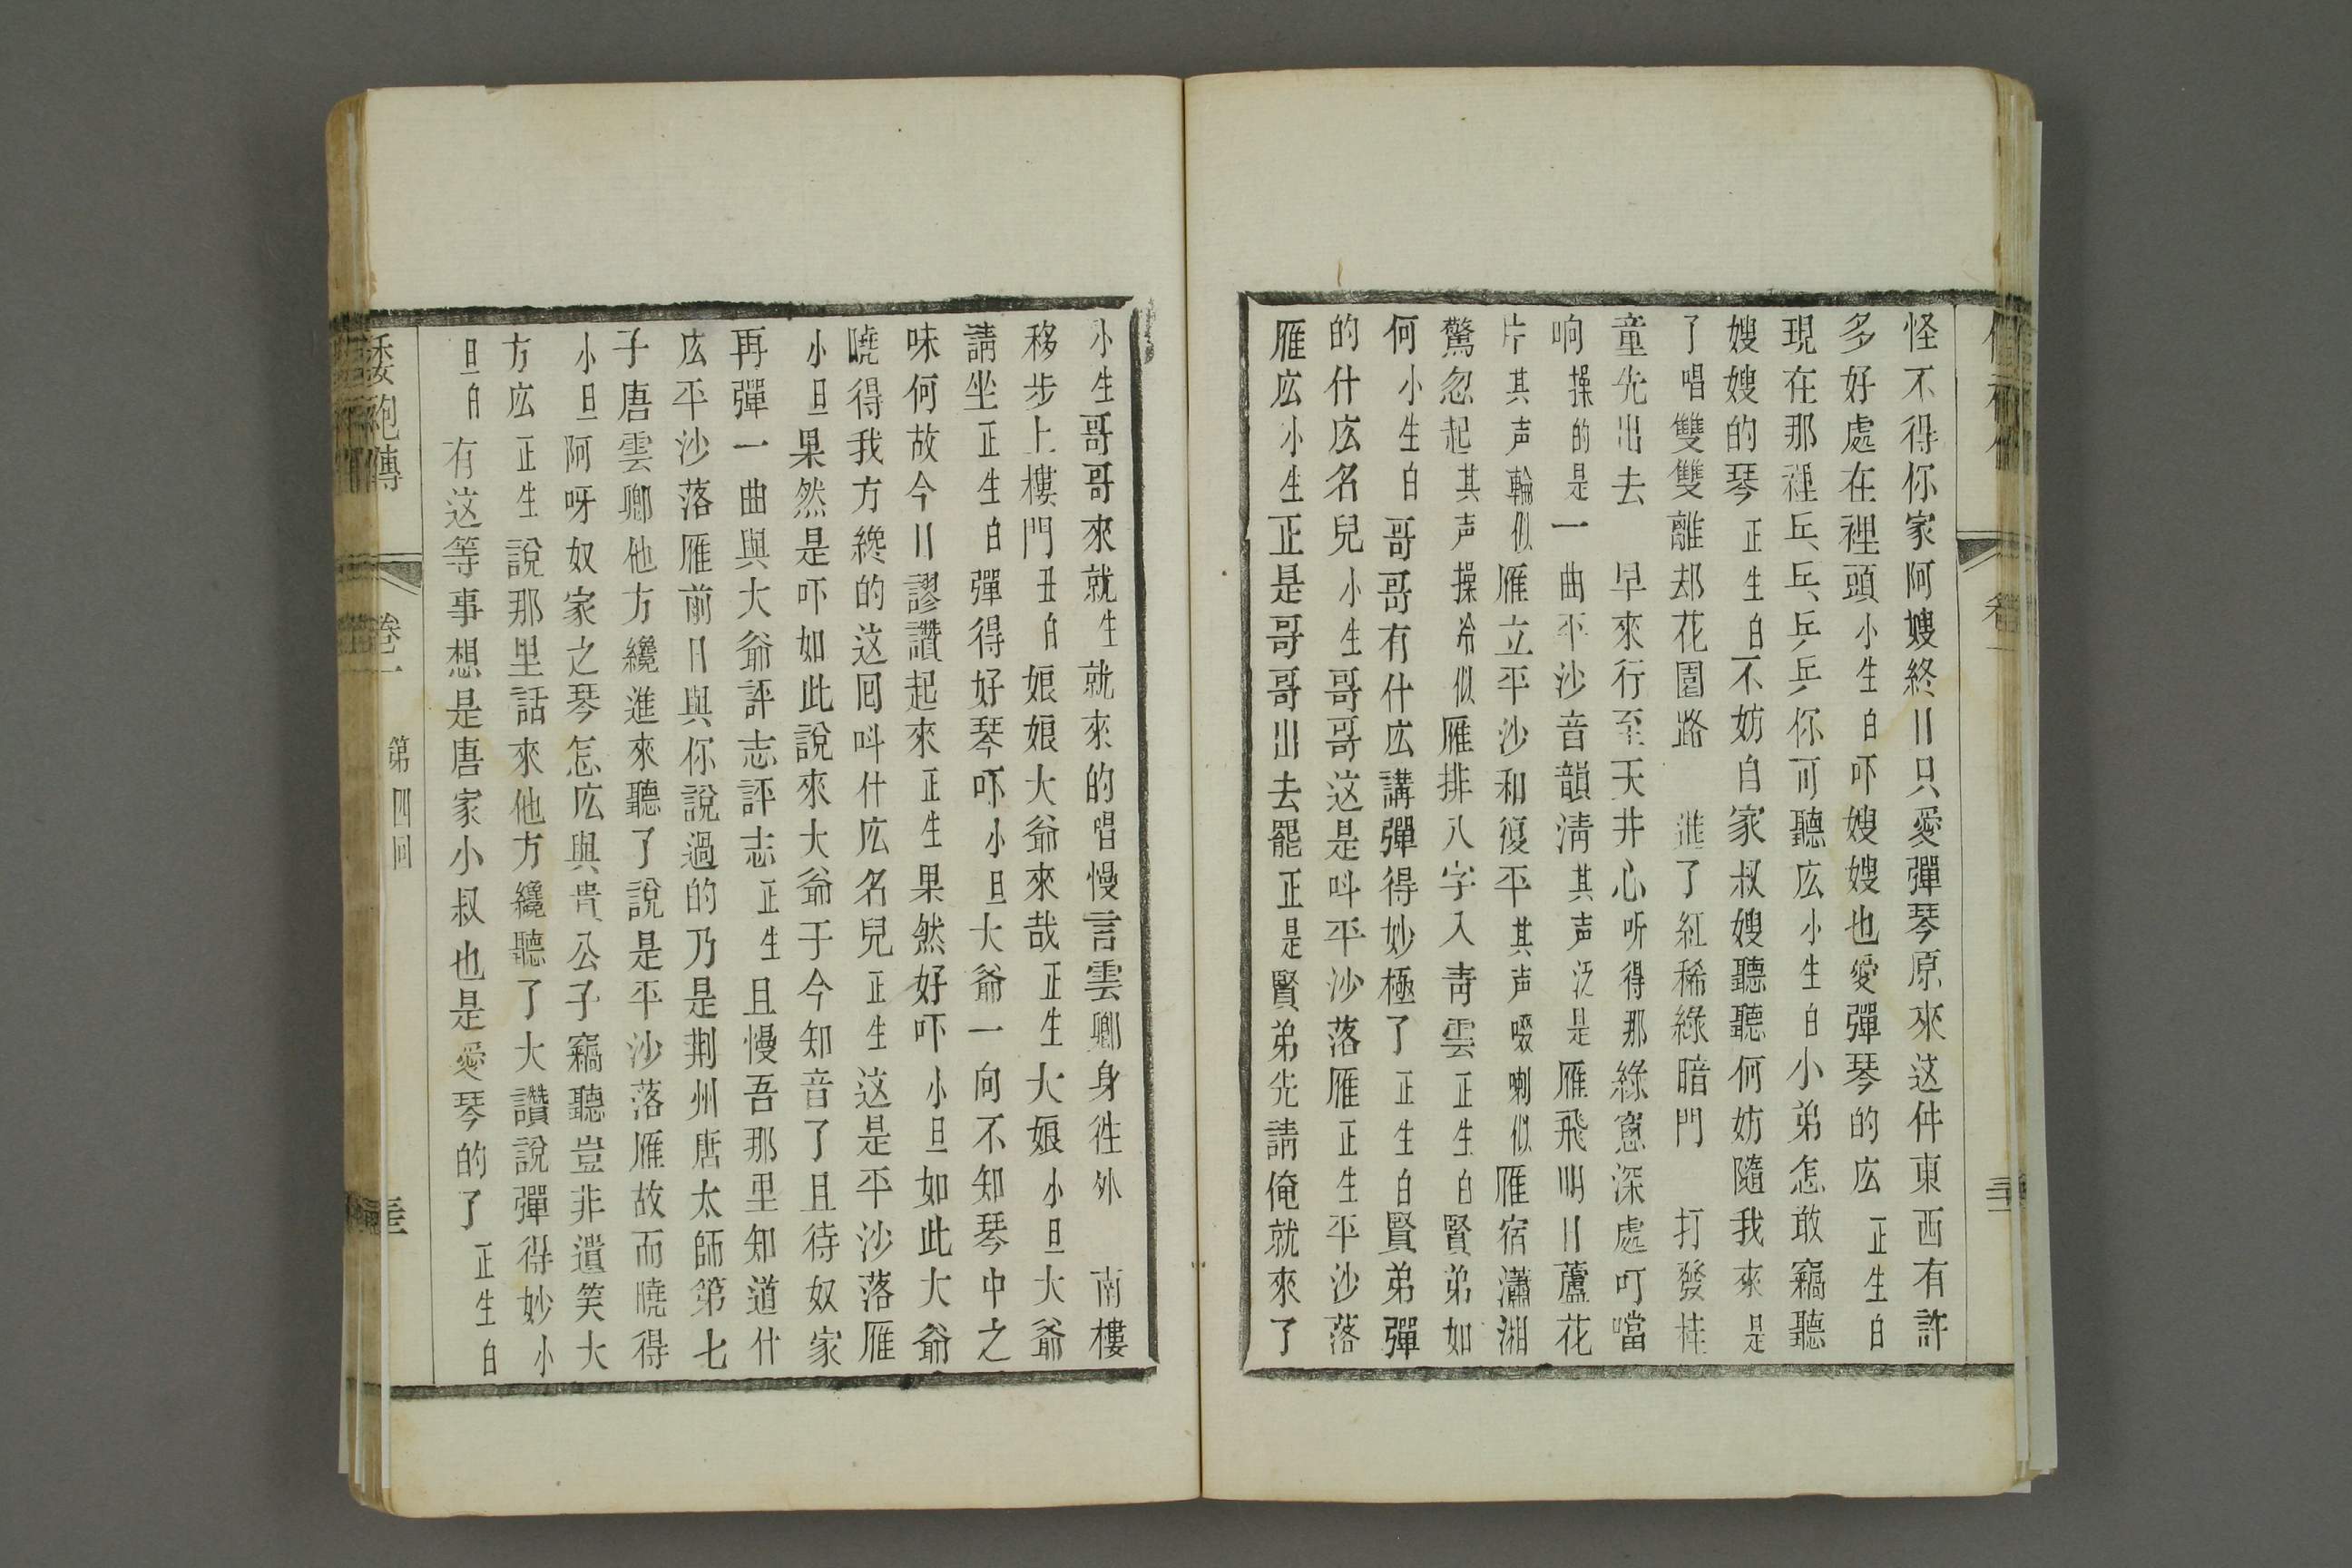 怪不得你家阿嫂終〢只愛彈琴原來这件東西有許
多好處在裡頭小生白吓嫂嫂也愛彈琴的庅正生白
現在那裡乒乓乒乓你可聽庅小生白小弟怎敢竊聽
嫂嫂的琴正生白不妨自家叔嫂聽聽何妨隨我來是
了唱雙雙離却花園路進了紅稀綠暗門打發桂
童先出去早來行至天井心听得那綠窻深處叮噹
响操的是一曲平沙音韻淸其声泛是雁飛明〢蘆花
片其声輪似雁立平沙和復平其声啜喇似雁宿瀟湘
驚忽起其声操冷似雁排八字入靑雲正生白賢弟如
何小生白哥哥有什庅講彈得妙極了正生白賢弟彈
的什庅名兒小生哥哥这是呌平沙落雁正生平沙落
雁庅小生正是哥哥出去罷正是賢弟先請俺就來了
小生哥哥來就生就來的唱慢言雲卿身徃外南樓
移步上樓門丑白娘娘大爺來哉正生大娘小旦大爺
請坐正生白彈得好琴吓小旦大爺一向不知琴中之
味何故今〢謬讚起來正生果然好吓小旦如此大爺
曉得我方纔的这囘呌什庅名兒正生这是平沙落雁
小旦果然是吓如此說來大爺于今知音了且待奴家
再彈一曲與大爺評志評志正生且慢吾那里知道什
庅平沙落雁前日與你說過的乃是荆州唐太師第七
子唐雲卿他方纔進來聽了說是平沙落雁故而曉得
小旦阿呀奴家之琴怎庅與貴公子竊聽豈非遺笑大
方庅正生說那里話來他方纔聽了大讚說彈得妙小
旦白有这等事想是唐家小叔也是愛琴的了正生白
倭袍傳 卷一 第四囘